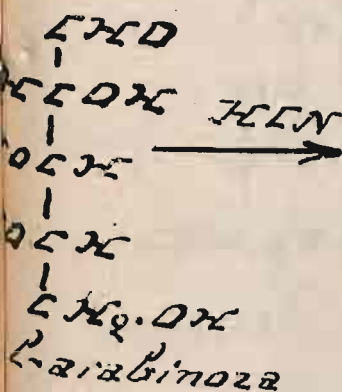 CHO
HCOH
HCN
OCH
OCH
CH₂.OH
L-arabinoza